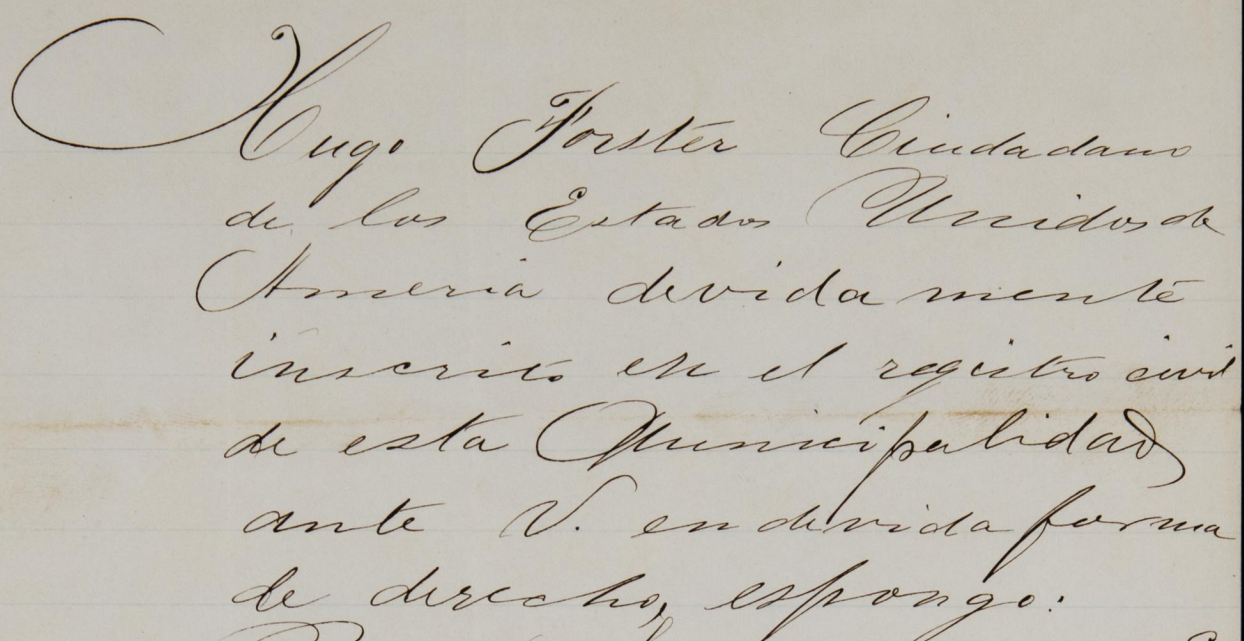 Hugo Forster Ciudadano
de los Estados Unidos de
Ameria devidamente
inscrito en el registro civil
de esta Municipalidad
ante V. en devida forma
de derecho, espongo: